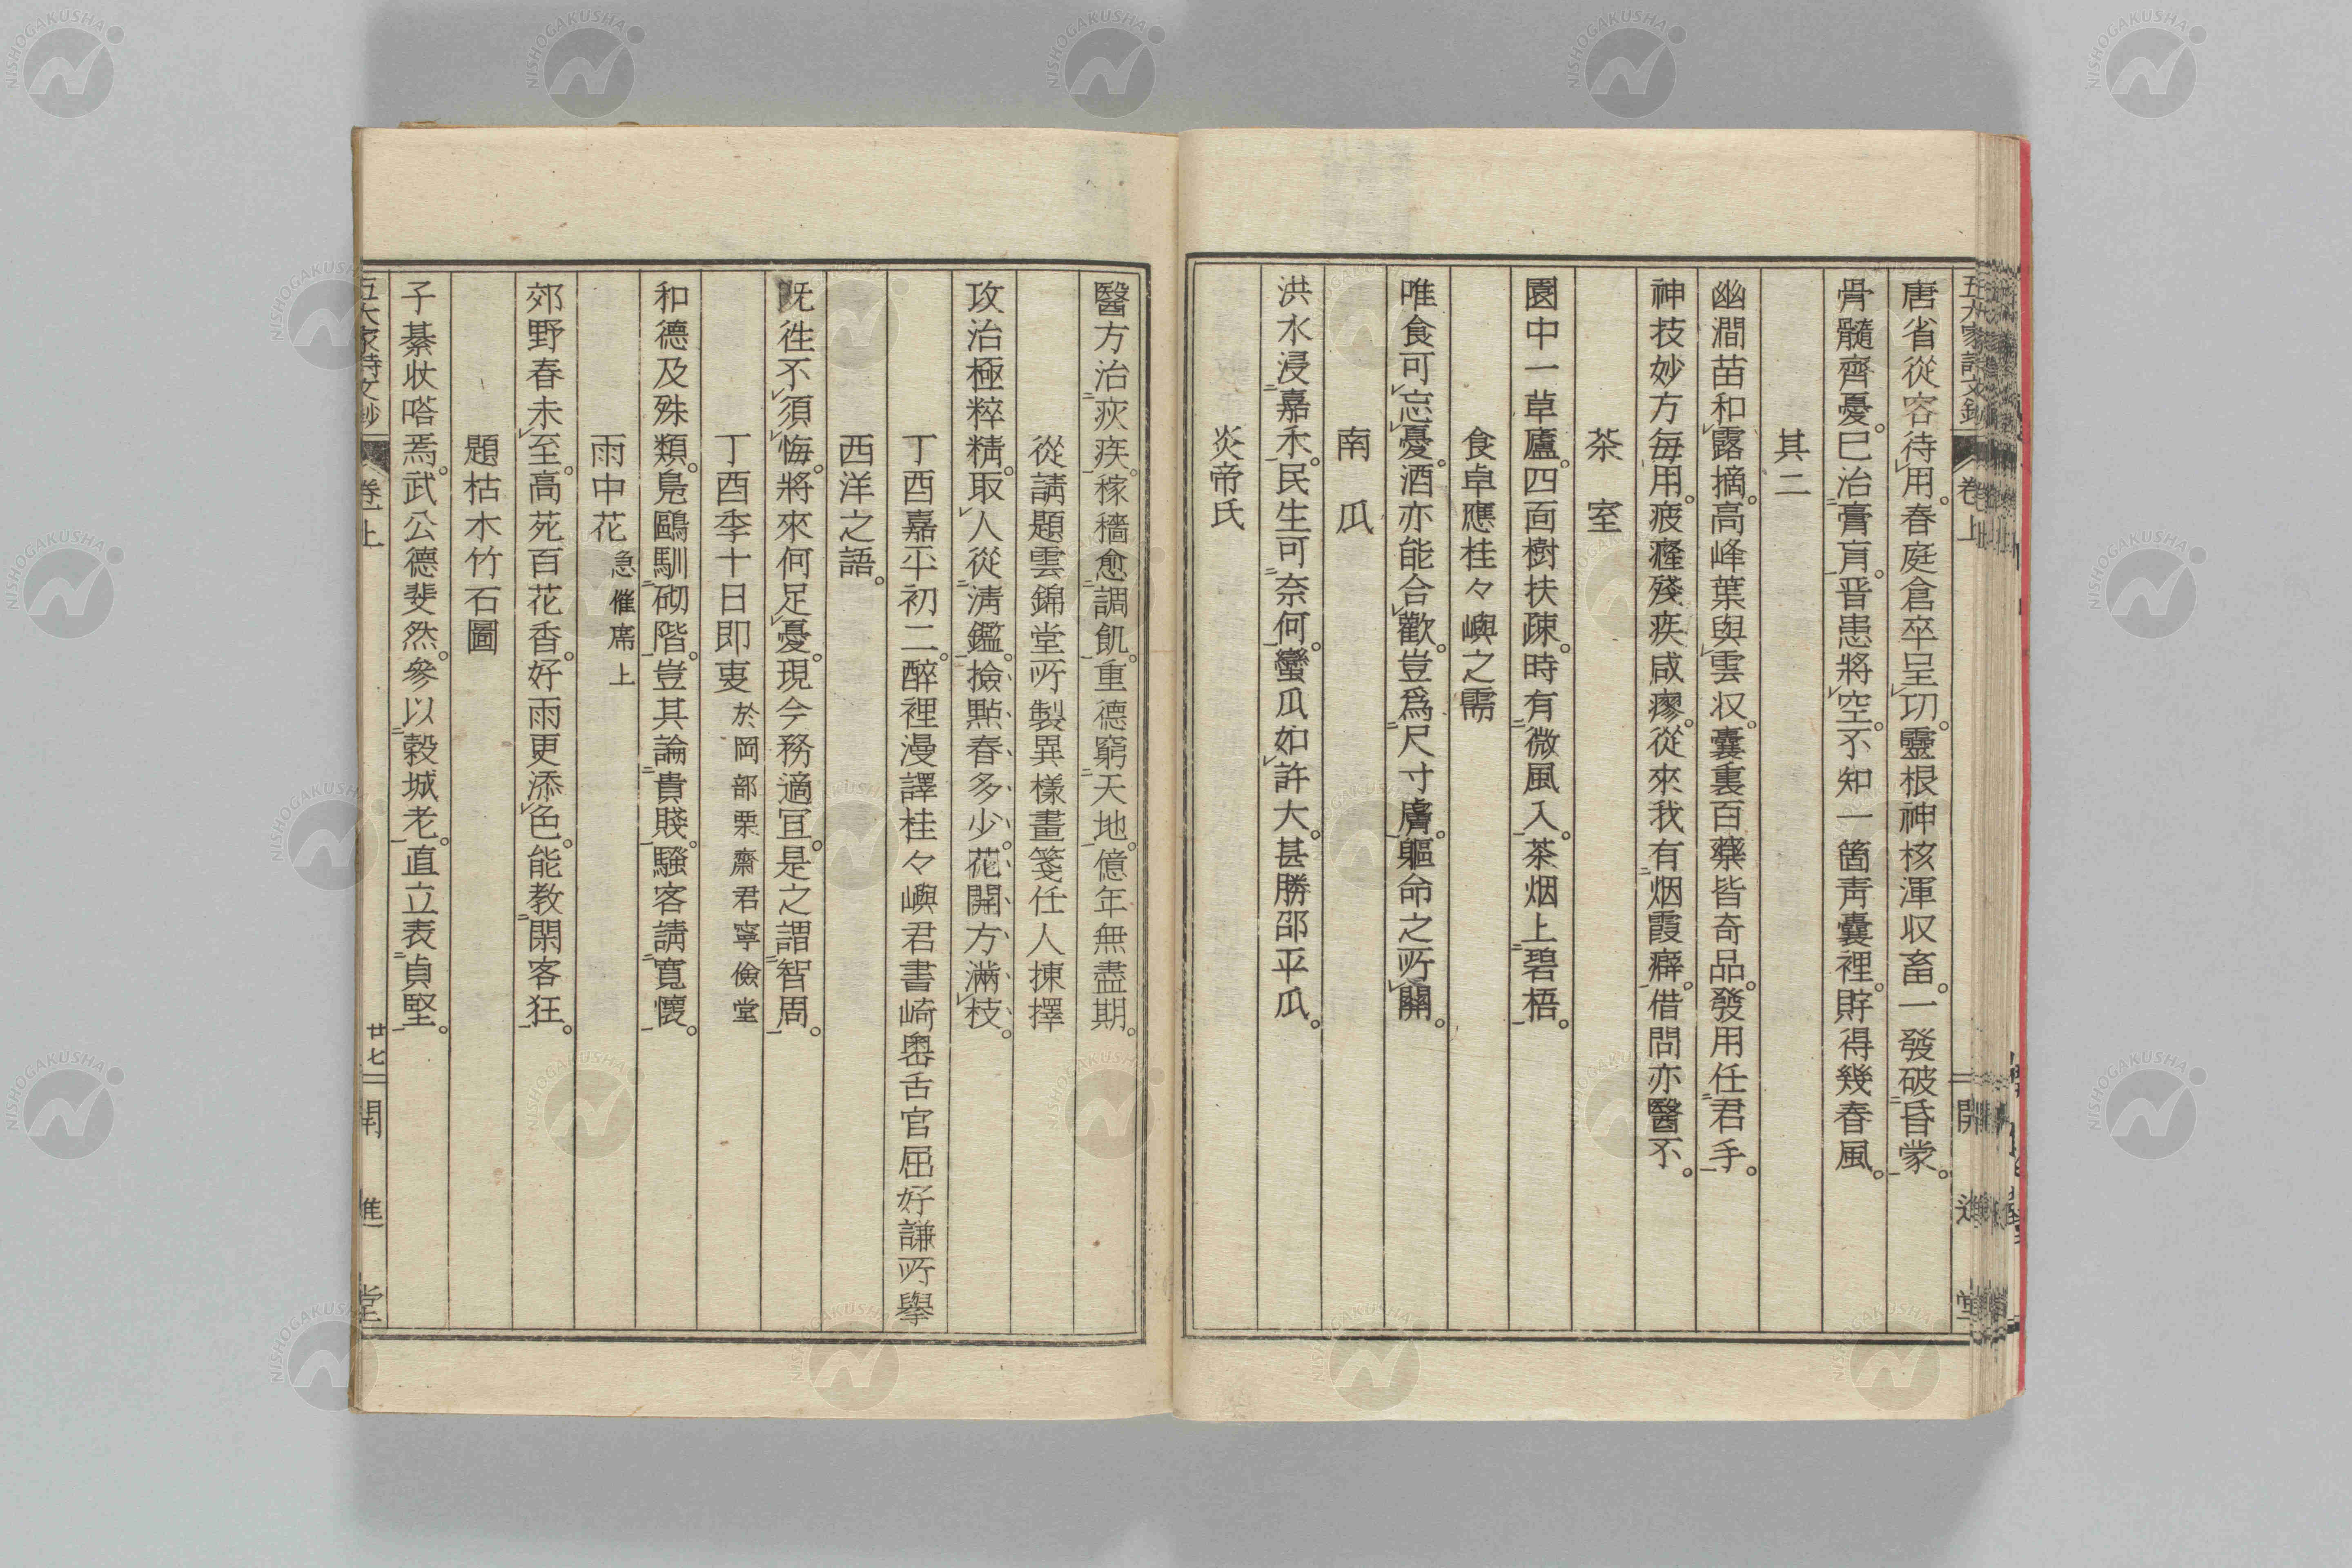 五大家詩文鈔 卷上 開進堂
唐省從容待用。春庭倉卒呈功。靈根神核渾収畜。一發破昏蒙。
骨髓齊憂。已治膏肓。晋患將空。不知一箇靑囊裡。貯得幾春風。
其二
幽澗苗和露摘。高峰葉與雲収。囊裏百藥皆奇品。發用任君手。
神技妙方每用。疲癃殘疾咸瘳。從來我有烟霞癖。借問亦醫不。
茶室
園中一草廬。四面樹扶疎。時有微風入。茶烟上碧梧。
食卓應桂々嶼之需
唯食可忘憂。酒亦能合歡。豈爲尺寸膚。軀命之所關。
南瓜
洪水浸嘉禾。民生可奈何。蠻瓜如許大。甚勝邵平瓜。
炎帝氏
醫方治疢疾。稼穡愈調飢。重德窮天地。億年無盡期。
從請題雲錦堂所製異樣畫箋任人揀擇
攻治極粹精。取人從淸鑑。撿點春多少。花開方滿枝。
丁酉嘉平初二。醉裡漫譯桂々嶼君書崎嶴舌官屈好謙所擧
西洋之語。
既徃不須悔。將來何足憂。現今務適宜。是之謂智周。
丁酉季十日即叓 於岡部栗齋君寧儉堂
和德及殊類。鳧鷗馴砌階。豈其論貴賤。騷客請寬懷。
雨中花 急催席上
郊野春未至。高苑百花香。好雨更添色。能教閑客狂。
題枯木竹石圖
子綦狀嗒焉。武公德斐然。參以穀城老。直立表貞堅。
五大家詩文鈔 卷上 廿七 開進堂